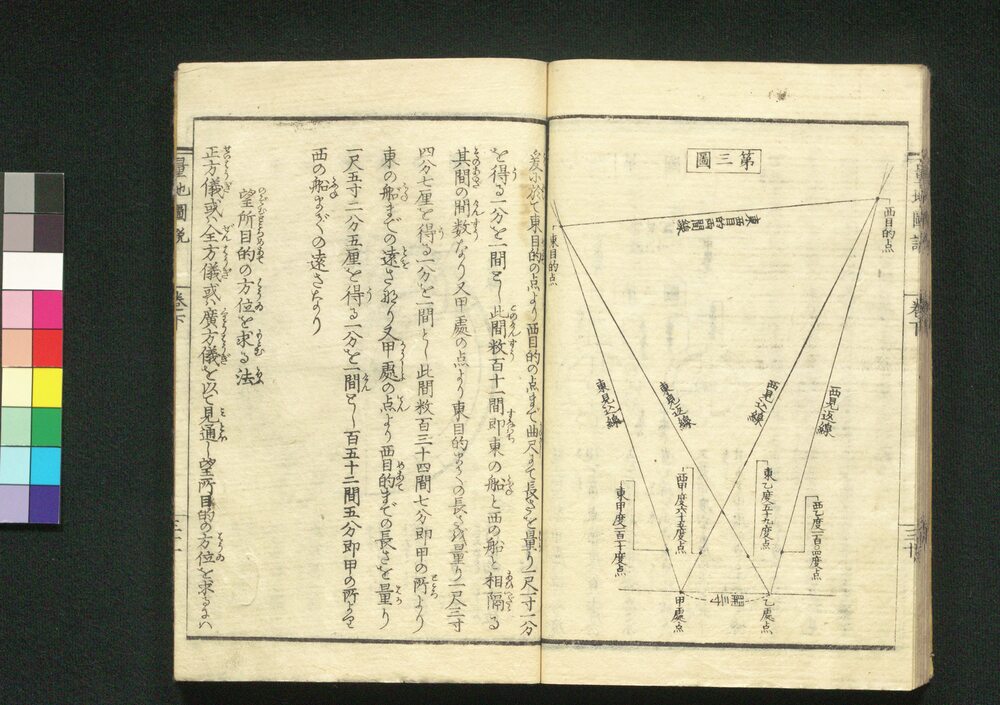 第三圖
西目的点
東西目的両間線
東目的点
西見返線
西見込線
東見返線
東見込線
西乙度一百四度点
東乙度五十九度点
西甲度六十五度点
東甲度一百二十度点
乙處点
甲處点
爰に於て東目的の点より西目的の点まで曲尺にて長さを量り一尺一寸一分
を得る一分を一間とし此間数百十一間即東の船と西の船と相隔る
其間の間数なり又甲處の点より東目的までの長さを量り一尺三寸
四分七厘を得る一分を一間とし此間数百三十四間七分即甲の所より
東の船までの遠さなり又甲處の点より西目的までの長さを量り
一尺五寸二分五厘を得る一分を一間とし百五十二間五分即甲の所より
西の船までの遠さなり
望所目的の方位を求る法
正方儀或ハ全方儀或ハ廣方儀を以て見通し望所目的の方位を求るにハ
量地圖説
巻下